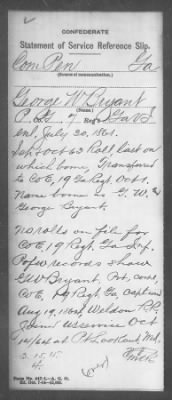 CONFEDERATE
Statement of Service Reference Slip.
Com Pen Ga
(Source of communication.)
George W Bryant
(Name.)
7 Regt Ga
enl, July 30, 1861.
Sept Oct 63 Roll last on
which borne, Transferred
to Co E, 19 Ga Regt, Oct 1.
Name borne as G. W. &
George Bryant.
no rolls on file for
Co E, 19 Regt, Ga Inf.
P of W records show
G W Bryant, Pvt,
Co E, 19 Regt, Ga, captured
Aug 19, 1864, Weldon RR.
Joined U S service Oct
14/64 at Pt Lookout, Md.
3-15-15
(over)